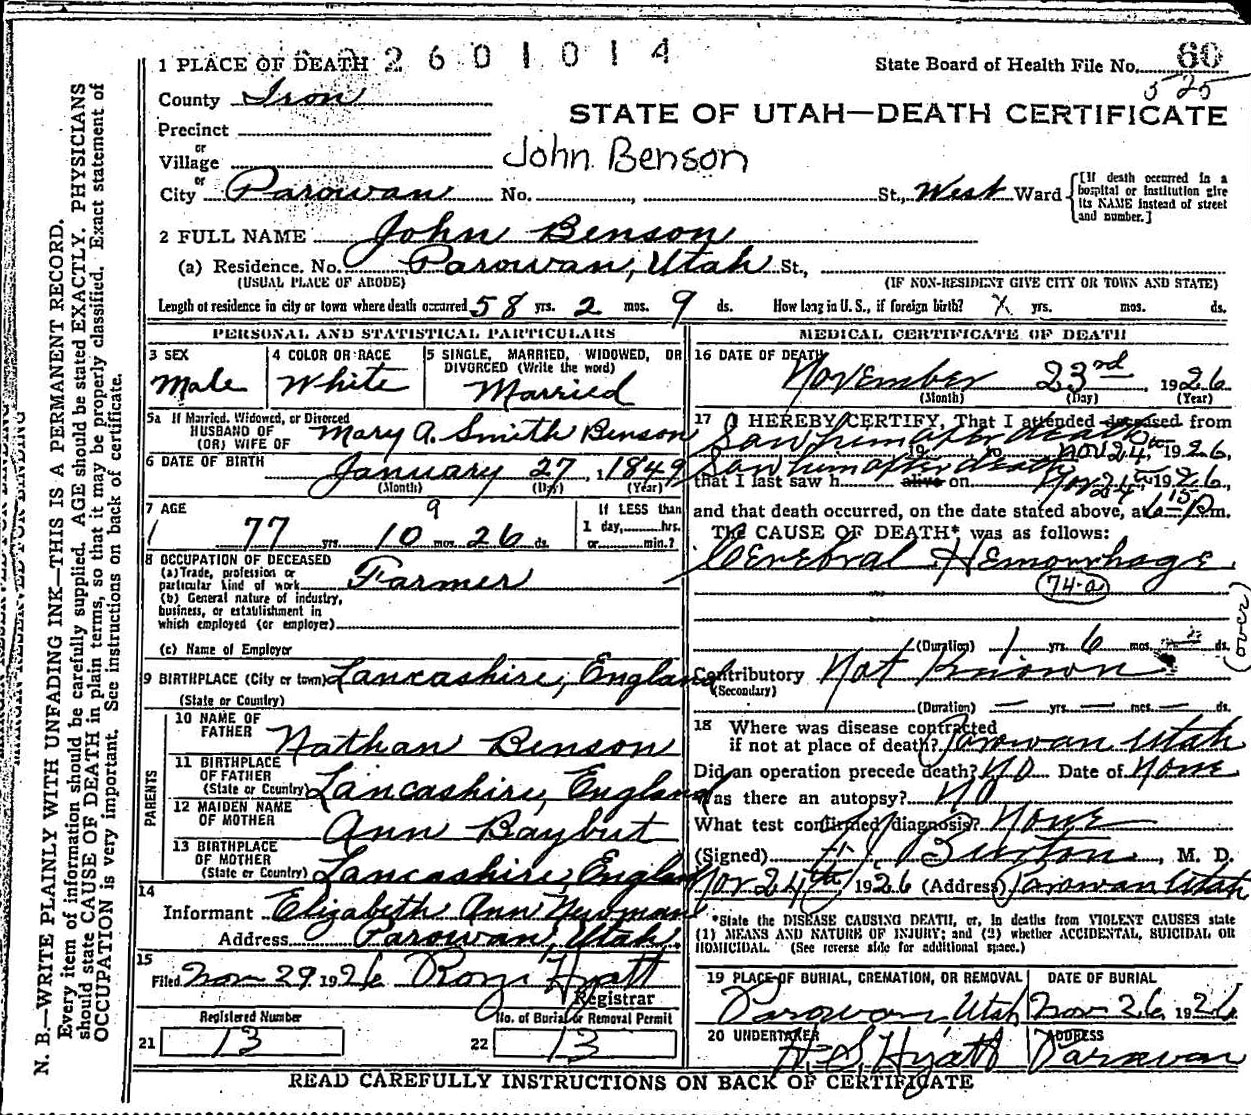 2601014
1 PLACE OF DEATH
State Board of Health File No. 60
525
County Iron
STATE OF UTAH—DEATH CERTIFICATE
Precinct
or
Village
John Benson
or
City Parowan No. St., West Ward
[If death occurred in a hospital or institution give its NAME instead of street and number.]
2 FULL NAME John Benson
(a) Residence. No. Parowan, Utah St.,
(USUAL PLACE OF ABODE) (IF NON-RESIDENT GIVE CITY OR TOWN AND STATE)
Length of residence in city or town where death occurred 58 yrs. 2 mos. 9 ds. How long in U. S., if foreign birth? X yrs. mos. ds.
PERSONAL AND STATISTICAL PARTICULARS
3 SEX
Male
4 COLOR OR RACE
White
5 SINGLE, MARRIED, WIDOWED, OR DIVORCED (Write the word)
Married
5a If Married, Widowed, or Divorced
HUSBAND OF
(OR) WIFE OF Mary A. Smith Benson
6 DATE OF BIRTH January 27, 1849
(Month) (Day) (Year)
7 AGE
77 yrs. 10 mos. 26 ds.
9
If LESS than
1 day, hrs.
or min.?
8 OCCUPATION OF DECEASED
(a) Trade, profession or
particular kind of work Farmer
(b) General nature of industry,
business, or establishment in
which employed (or employer)
(c) Name of Employer
9 BIRTHPLACE (City or town) Lancashire, England
(State or Country)
PARENTS
10 NAME OF
FATHER Nathan Benson
11 BIRTHPLACE
OF FATHER
(State or Country) Lancashire, England
12 MAIDEN NAME
OF MOTHER Ann Baybut
13 BIRTHPLACE
OF MOTHER
(State or Country) Lancashire, England
14
Informant Elizabeth Ann Newman
Address Parowan, Utah.
15
Filed Nov 29 1926 Hyatt
Registrar
Registered Number
21 13
No. of Burial or Removal Permit
22 13
MEDICAL CERTIFICATE OF DEATH
16 DATE OF DEATH
November 23rd, 1926
(Month) (Day) (Year)
17 I HEREBY CERTIFY, That I attended deceased from
Saw him after death
19 to Nov 24th, 1926,
Saw him after death
that I last saw h alive on Nov 24th, 1926,
and that death occurred, on the date stated above, at 6 15 P.m.
The CAUSE OF DEATH* was as follows:
Cerebral Hemorrhage
74-a
(over)
(Duration) 1 yrs 6 mos. ds.
Contributory Not Known
(Secondary)
(Duration) — yrs. — mos. — ds.
18 Where was disease contracted
if not at place of death? Parowan Utah
Did an operation precede death? NO Date of None
Was there an autopsy? NO
What test confirmed diagnosis? None
(Signed) Burton, M. D.
Nov 24th, 1926 (Address) Parowan Utah
*State the DISEASE CAUSING DEATH, or, in deaths from VIOLENT CAUSES state
(1) MEANS AND NATURE OF INJURY; and (2) whether ACCIDENTAL, SUICIDAL OR
HOMICIDAL. (See reverse side for additional space.)
19 PLACE OF BURIAL, CREMATION, OR REMOVAL
Parowan, Utah
DATE OF BURIAL
Nov 26, 1926
20 UNDERTAKER
H. S. Hyatt
ADDRESS
Parowan
READ CAREFULLY INSTRUCTIONS ON BACK OF CERTIFICATE
N. B.—WRITE PLAINLY WITH UNFADING INK—THIS IS A PERMANENT RECORD.
Every item of information should be carefully supplied. AGE should be stated EXACTLY. PHYSICIANS
should state CAUSE OF DEATH in plain terms, so that it may be properly classified. Exact statement of
OCCUPATION is very important. See instructions on back of certificate.